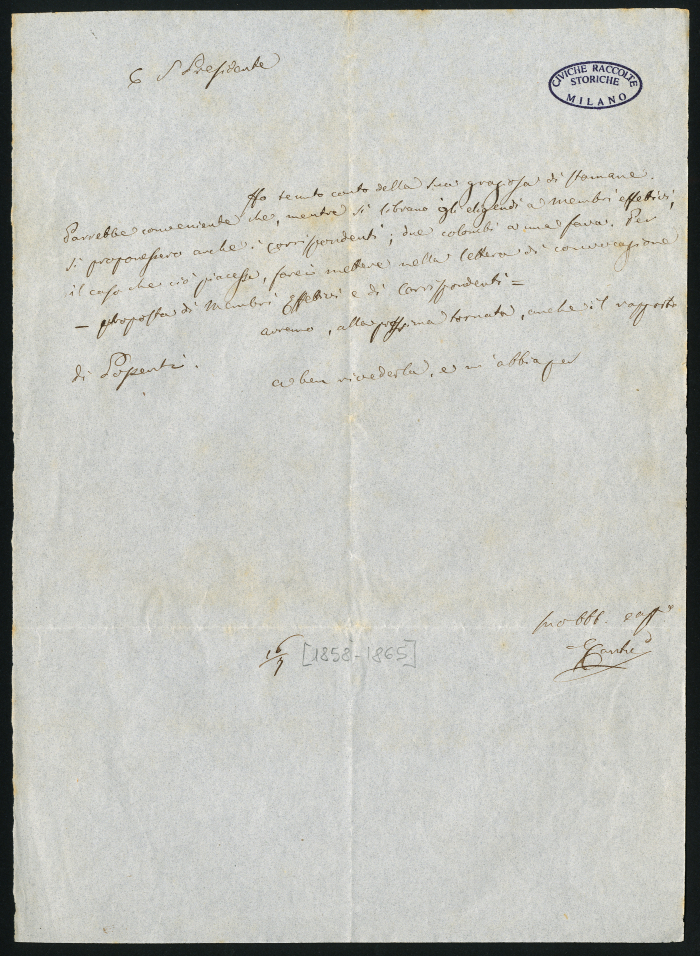 C S Presidente
CIVICHE RACCOLTE
STORICHE
MILANO
Ho tenuto conto della sua graziosa di stamane.
Parrebbe conveniente che, mentre si librano gli eligendi a Membri effettivi,
si proponessero anche i corrispondenti; due colombi a una fava. Per
il caso che ciò piacesse, farei mettere nella lettera di convocazione
— proposta di Membri Effettivi e di Corrispondenti =
avremo, alla prossima tornata, anche il rapporto
di
a ben rivederla, e m'abbia per
suo obb. ed aff.
CCantù
16/7 [1858-1865]